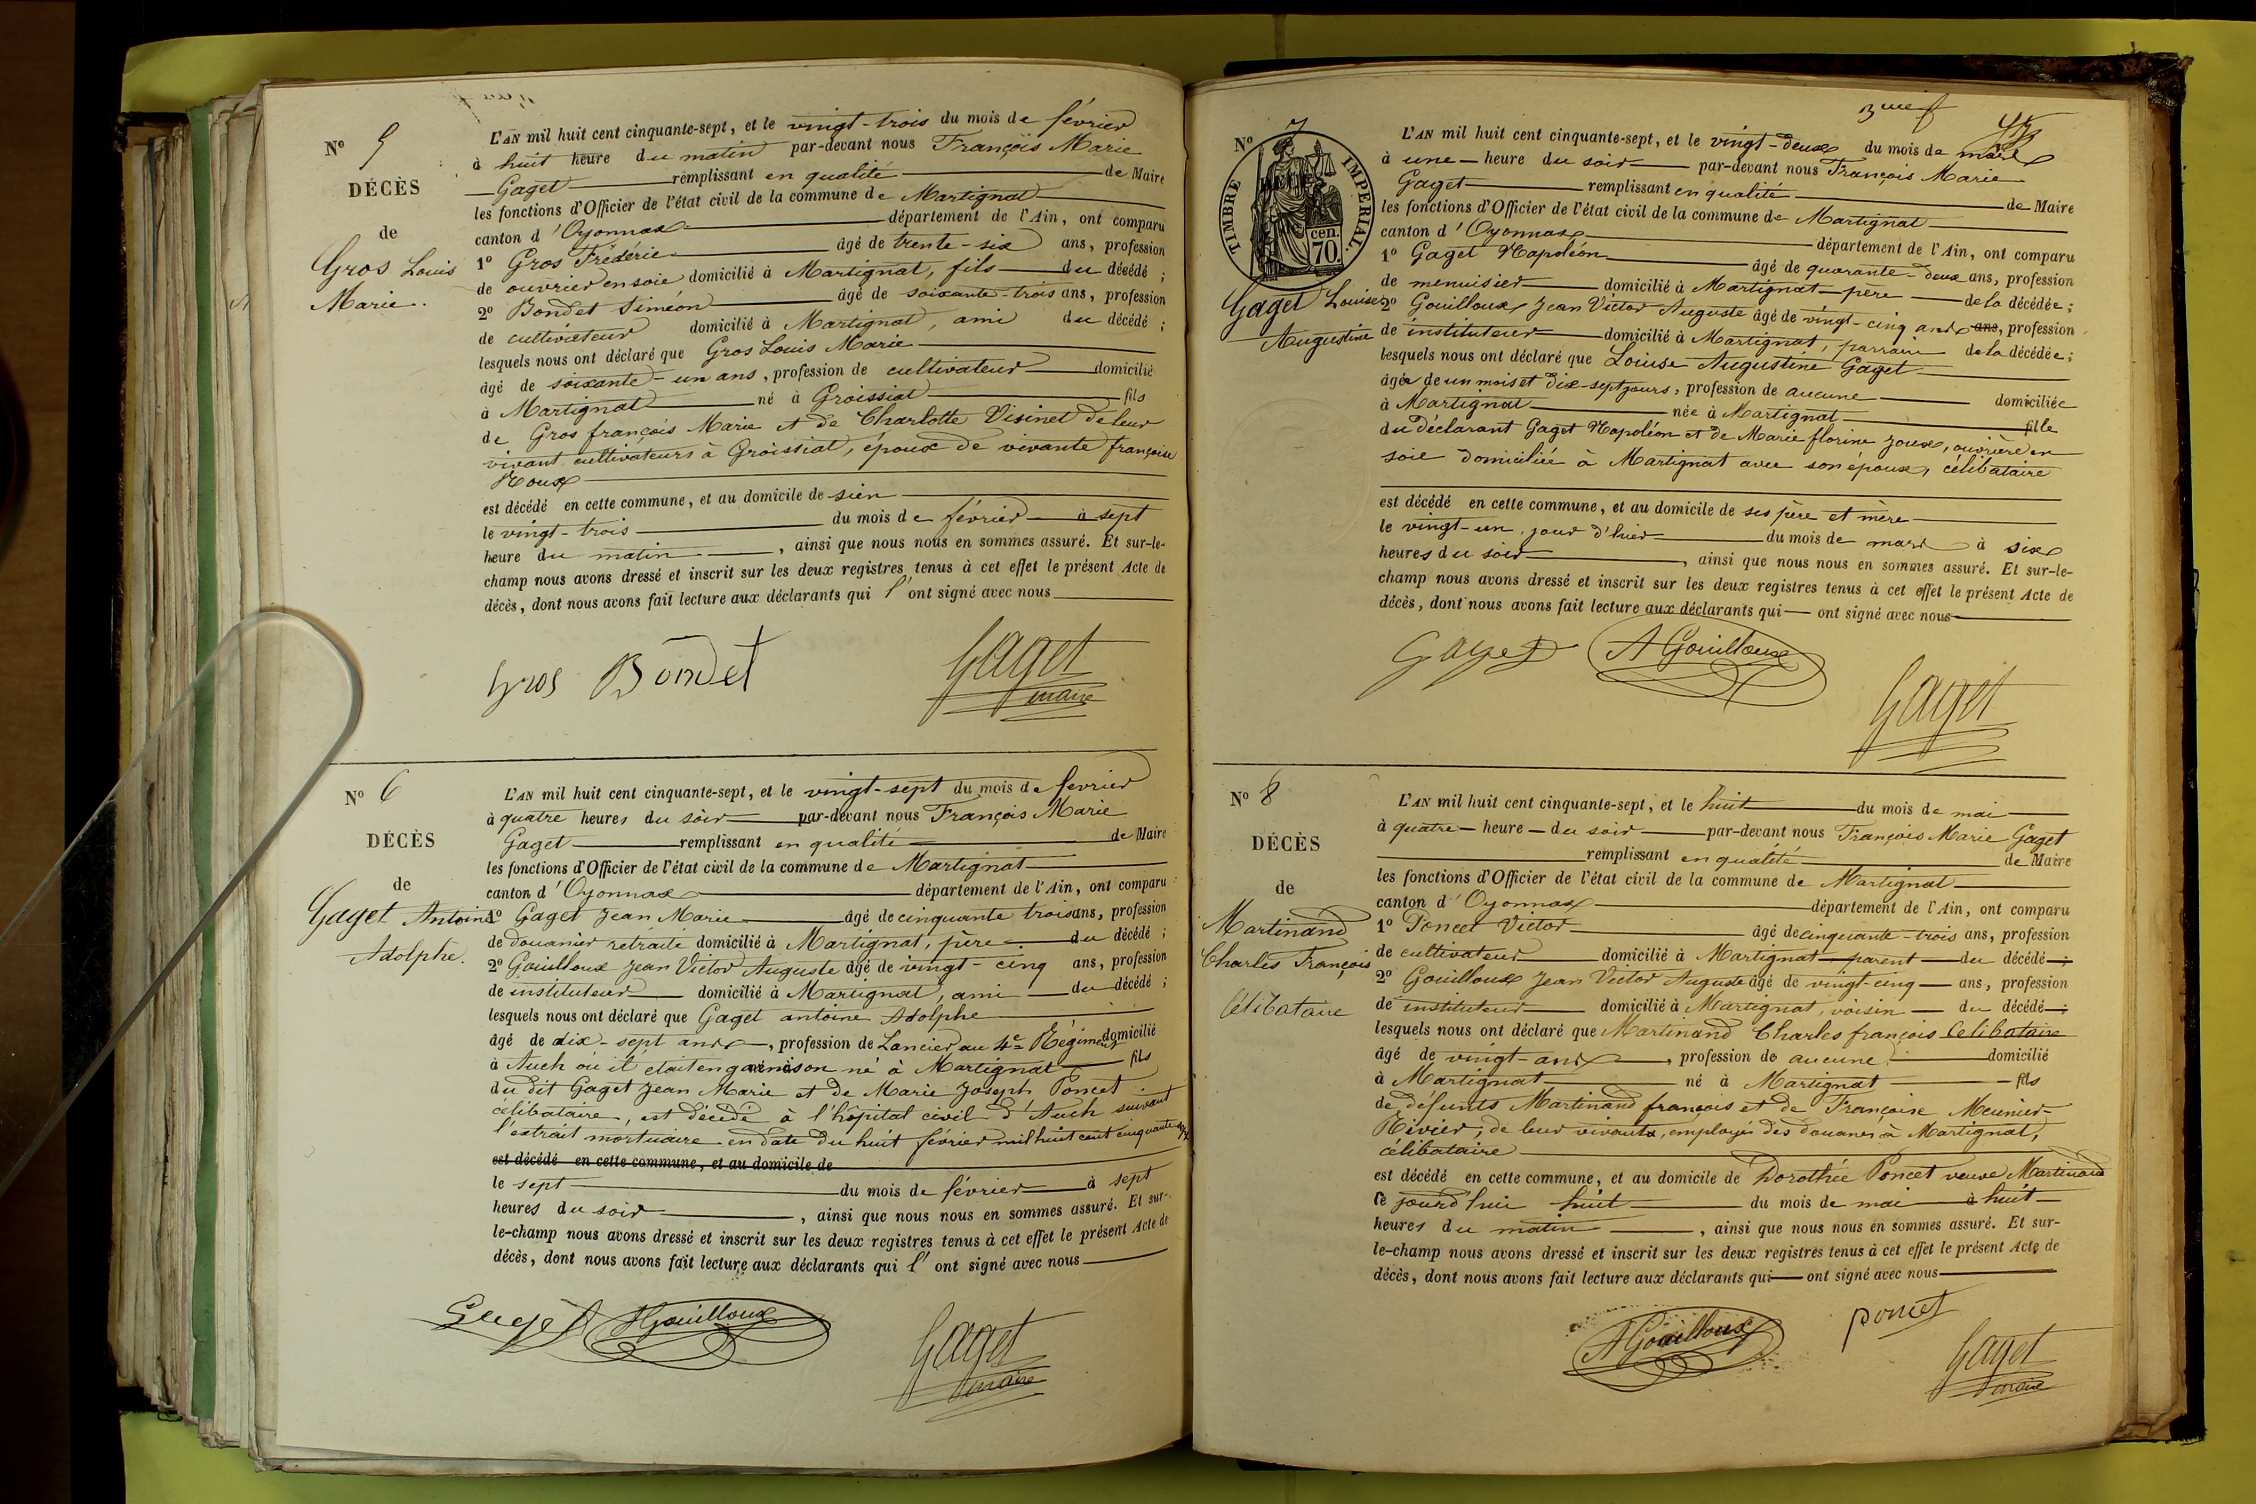 N° 5
DÉCÈS
de
Gros Louis
Marie.
L'AN mil huit cent cinquante-sept, et le vingt-trois du mois de février
à huit heure du matin par-devant nous François Marie
Gaget remplissant en qualité de Maire
les fonctions d'Officier de l'état civil de la commune de Martignat
canton d'Oyonnax département de l'Ain, ont comparu
1° Gros Frédéric âgé de trente-six ans, profession
de ouvrier en soie domicilié à Martignat, fils du décédé ;
2° Bondet Siméon âgé de soixante-trois ans, profession
de cultivateur domicilié à Martignat, ami du décédé ;
lesquels nous ont déclaré que Gros Louis Marie
âgé de soixante-un ans, profession de cultivateur domicilié
à Martignat né à Groissiat fils
de Gros françois Marie et de Charlotte Visinet de leur
vivant cultivateurs à Groissiat, époux de vivante françoise
Roux
est décédé en cette commune, et au domicile de sien
le vingt-trois du mois de février à sept
heure du matin, ainsi que nous nous en sommes assuré. Et sur-le-
champ nous avons dressé et inscrit sur les deux registres tenus à cet effet le présent Acte de
décès, dont nous avons fait lecture aux déclarants qui l'ont signé avec nous
Gros Bondet Gaget
maire
N° 6
DÉCÈS
de
Gaget Antoine
Adolphe.
L'AN mil huit cent cinquante-sept, et le vingt-sept du mois de février
à quatre heures du soir par-devant nous François Marie
Gaget remplissant en qualité de Maire
les fonctions d'Officier de l'état civil de la commune de Martignat
canton d'Oyonnax département de l'Ain, ont comparu
1° Gaget Jean Marie âgé de cinquante trois ans, profession
de douanier retraité domicilié à Martignat, père du décédé ;
2° Gouilloux Jean Victor Auguste âgé de vingt-cinq ans, profession
de instituteur domicilié à Martignat, ami du décédé ;
lesquels nous ont déclaré que Gaget antoine Adolphe
âgé de dix-sept ans, profession de Lancier au 4e Régiment domicilié
à Auch où il était en garnison né à Martignat fils
du dit Gaget Jean Marie et de Marie Joseph Poncet
célibataire, est décédé à l'hôpital civil d'Auch suivant
l'extrait mortuaire en date du huit février mil huit cent cinquante sept
est décédé en cette commune, et au domicile de
le sept du mois de février à sept
heures du soir, ainsi que nous nous en sommes assuré. Et sur-
le-champ nous avons dressé et inscrit sur les deux registres tenus à cet effet le présent Acte de
décès, dont nous avons fait lecture aux déclarants qui l'ont signé avec nous
Gaget AGouilloux Gaget
maire
N° 7
TIMBRE IMPERIAL.
cen.
70.
Gaget Louise
Augustine
L'AN mil huit cent cinquante-sept, et le vingt-deux du mois de mars
à une heure du soir par-devant nous François Marie
Gaget remplissant en qualité de Maire
les fonctions d'Officier de l'état civil de la commune de Martignat
canton d'Oyonnax département de l'Ain, ont comparu
1° Gaget Napoléon âgé de quarante-deux ans, profession
de menuisier domicilié à Martignat père de la décédée ;
2° Gouilloux Jean Victor Auguste âgé de vingt-cinq ans ans, profession
de instituteur domicilié à Martignat, parrain de la décédée ;
lesquels nous ont déclaré que Louise Augustine Gaget
âgée de un mois et dix-sept jours, profession de aucune domiciliée
à Martignat née à Martignat fille
du déclarant Gaget Napoléon et de Marie florine Joux, ouvrière en
soie domiciliée à Martignat avec son époux, célibataire
est décédé en cette commune, et au domicile de ses père et mère
le vingt-un, jour d'hier du mois de mars à six
heures du soir, ainsi que nous nous en sommes assuré. Et sur-le-
champ nous avons dressé et inscrit sur les deux registres tenus à cet effet le présent Acte de
décès, dont nous avons fait lecture aux déclarants qui ont signé avec nous
Gaget AGouilloux
Gaget
N° 8
DÉCÈS
de
Martinand
Charles François
Célibataire
L'AN mil huit cent cinquante-sept, et le huit du mois de mai
à quatre heure du soir par-devant nous François Marie Gaget
remplissant en qualité de Maire
les fonctions d'Officier de l'état civil de la commune de Martignat
canton d'Oyonnax département de l'Ain, ont comparu
1° Poncet Victor âgé de cinquante-trois ans, profession
de cultivateur domicilié à Martignat parent du décédé ;
2° Gouilloux Jean Victor Auguste âgé de vingt-cinq ans, profession
de instituteur domicilié à Martignat, voisin du décédé ;
lesquels nous ont déclaré que Martinand Charles françois Célibataire
âgé de vingt-ans, profession de aucune domicilié
à Martignat né à Martignat fils
de défunts Martinand françois et de Françoise Meunier-
Rivier, de leur vivants, employés des douanes à Martignat,
célibataire
est décédé en cette commune, et au domicile de Dorothée Poncet veuve Martinand
Ce jourd'hui huit du mois de mai à huit
heures du matin, ainsi que nous nous en sommes assuré. Et sur-
le-champ nous avons dressé et inscrit sur les deux registres tenus à cet effet le présent Acte de
décès, dont nous avons fait lecture aux déclarants qui ont signé avec nous
AGouilloux poncet
Gaget
maire